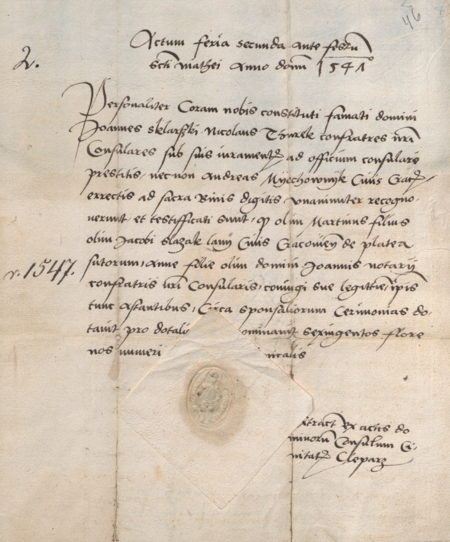 46
Actum feria secunda ante festu
Scti mathei Anno domi 1541
2.
Personaliter Coram nobis constituti famati domini
Joannes sklarski Nicolaus Thurek confratres nri
Consulares sub suis iurament ad officium consulare
prestitis, necnon Andreas Myechowijk Civis Crac
errectis ad sacra Binis digitis unanimiter recogno
verunt et testifficati sunt, q olim Martinus filius
olim Jacobi slazak lanij Civis Cracovien de platea
sutorum, Anne filie olim domini Joannis notarij
v. 1547.
confratris nri Consularis, coniugi sue legittie, ipsis
tunc astantibus, Circa sponsaliorum Cerimonias do
tavit pro dotali ominavit sexingentos flore
nos numeri
xtract ex actis do
minorum Consulum Ci
vitat Clepar